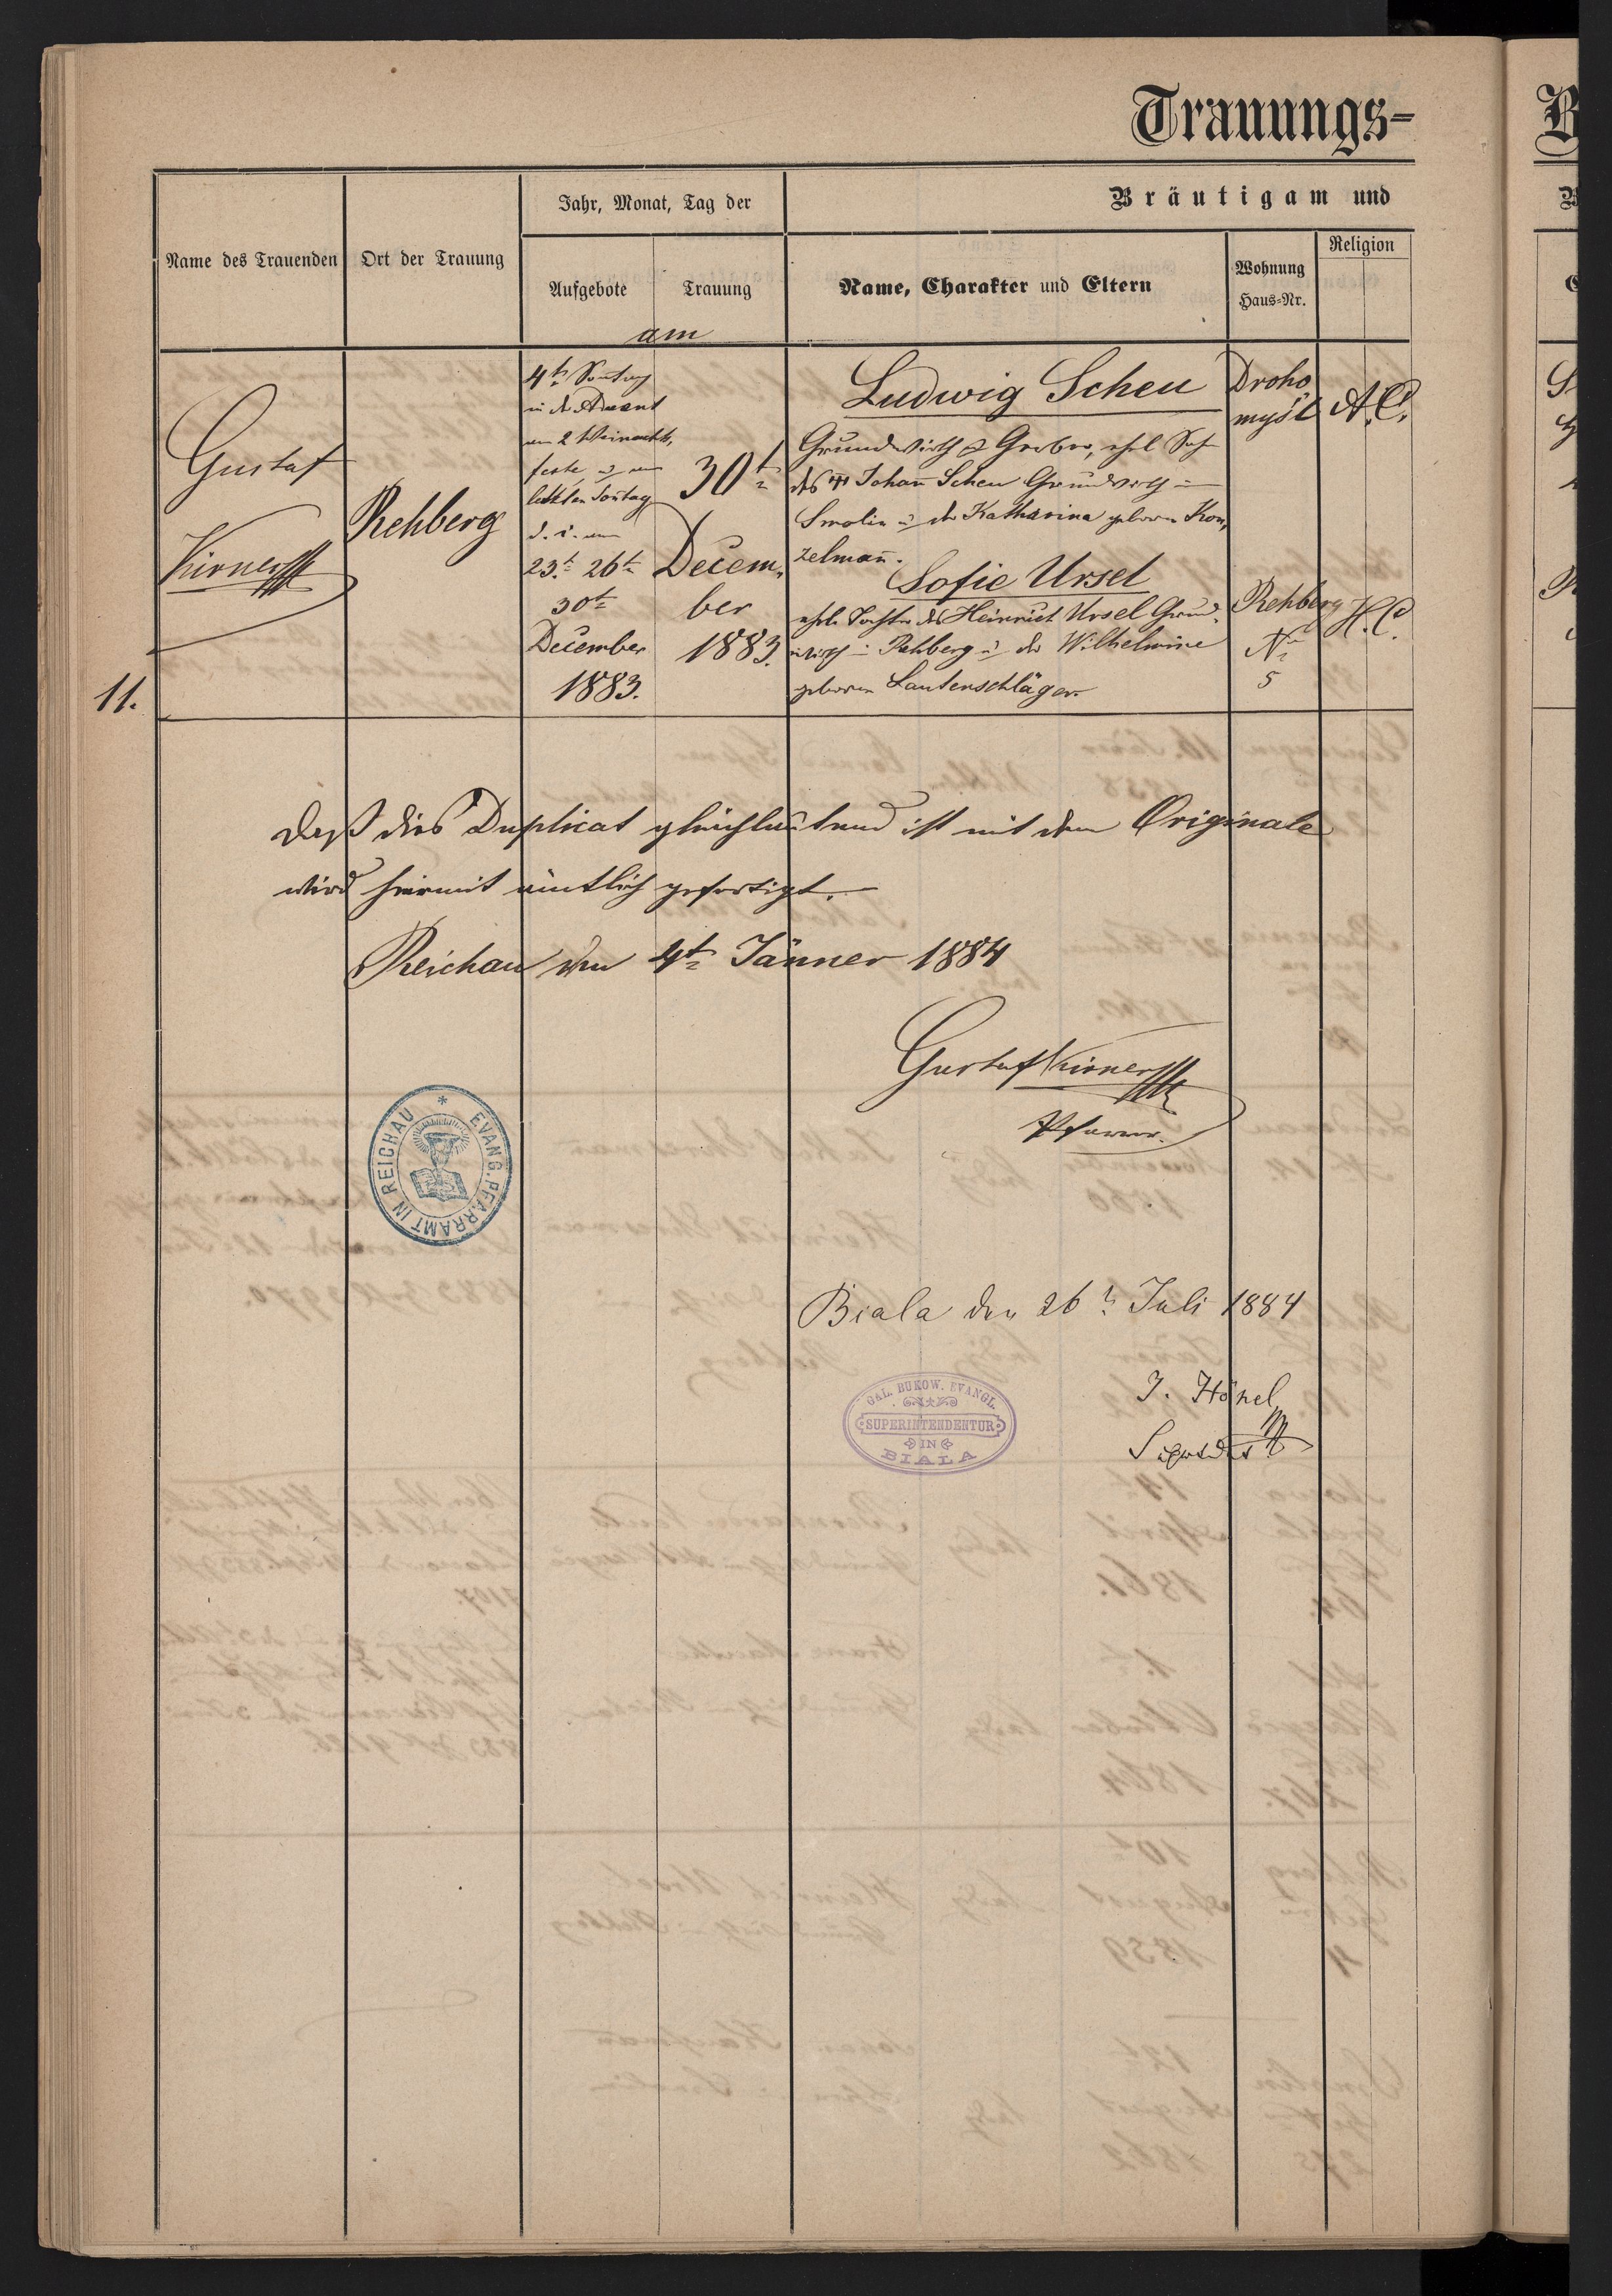 Trauungs-
Bräutigam und
Jahr, Monat, Tag der
Name des Trauenden
Ort der Trauung
Aufgebote
Trauung
am
Name, Charakter und Eltern
Wohnung
Haus-Nr.
Religion
11.
Gustaf
Kirner
Rehberg
4te Sontag
in d. Advent
am 2 Weinachts,
feste, u am
letzten Sontag
d. i. am
23t 26t
30t
December
1883.
30t
Decem,
ber
1883.
Ludwig Scheu
Grundwirth
des Johañ Scheu Grundwirth in
Smolin u der Katharina geboren Kon,
zelmañ.
Sofie Ursel
ehel. Tochter des Heinrich Ursel Grund,
wirth in Rehberg u der Wilhelmine
geboren Lautenschläger
Droho
mysl
A. C.
Rehberg
No
5
H. C.
Daß dies Duplicat gleichlautend ist mit dem Originale
wird hiermit amtlich gefertigt.
Reichau den 4t Jänner 1884
Gustaf Kirner
Pfarrer.
EVANG. PFARRAMT IN REICHAU *
Biala den 26t Juli 1884
J. Hönel
GAL. BUKOW. EVANGL.
SUPERINTENDENTUR
IN
BIALA